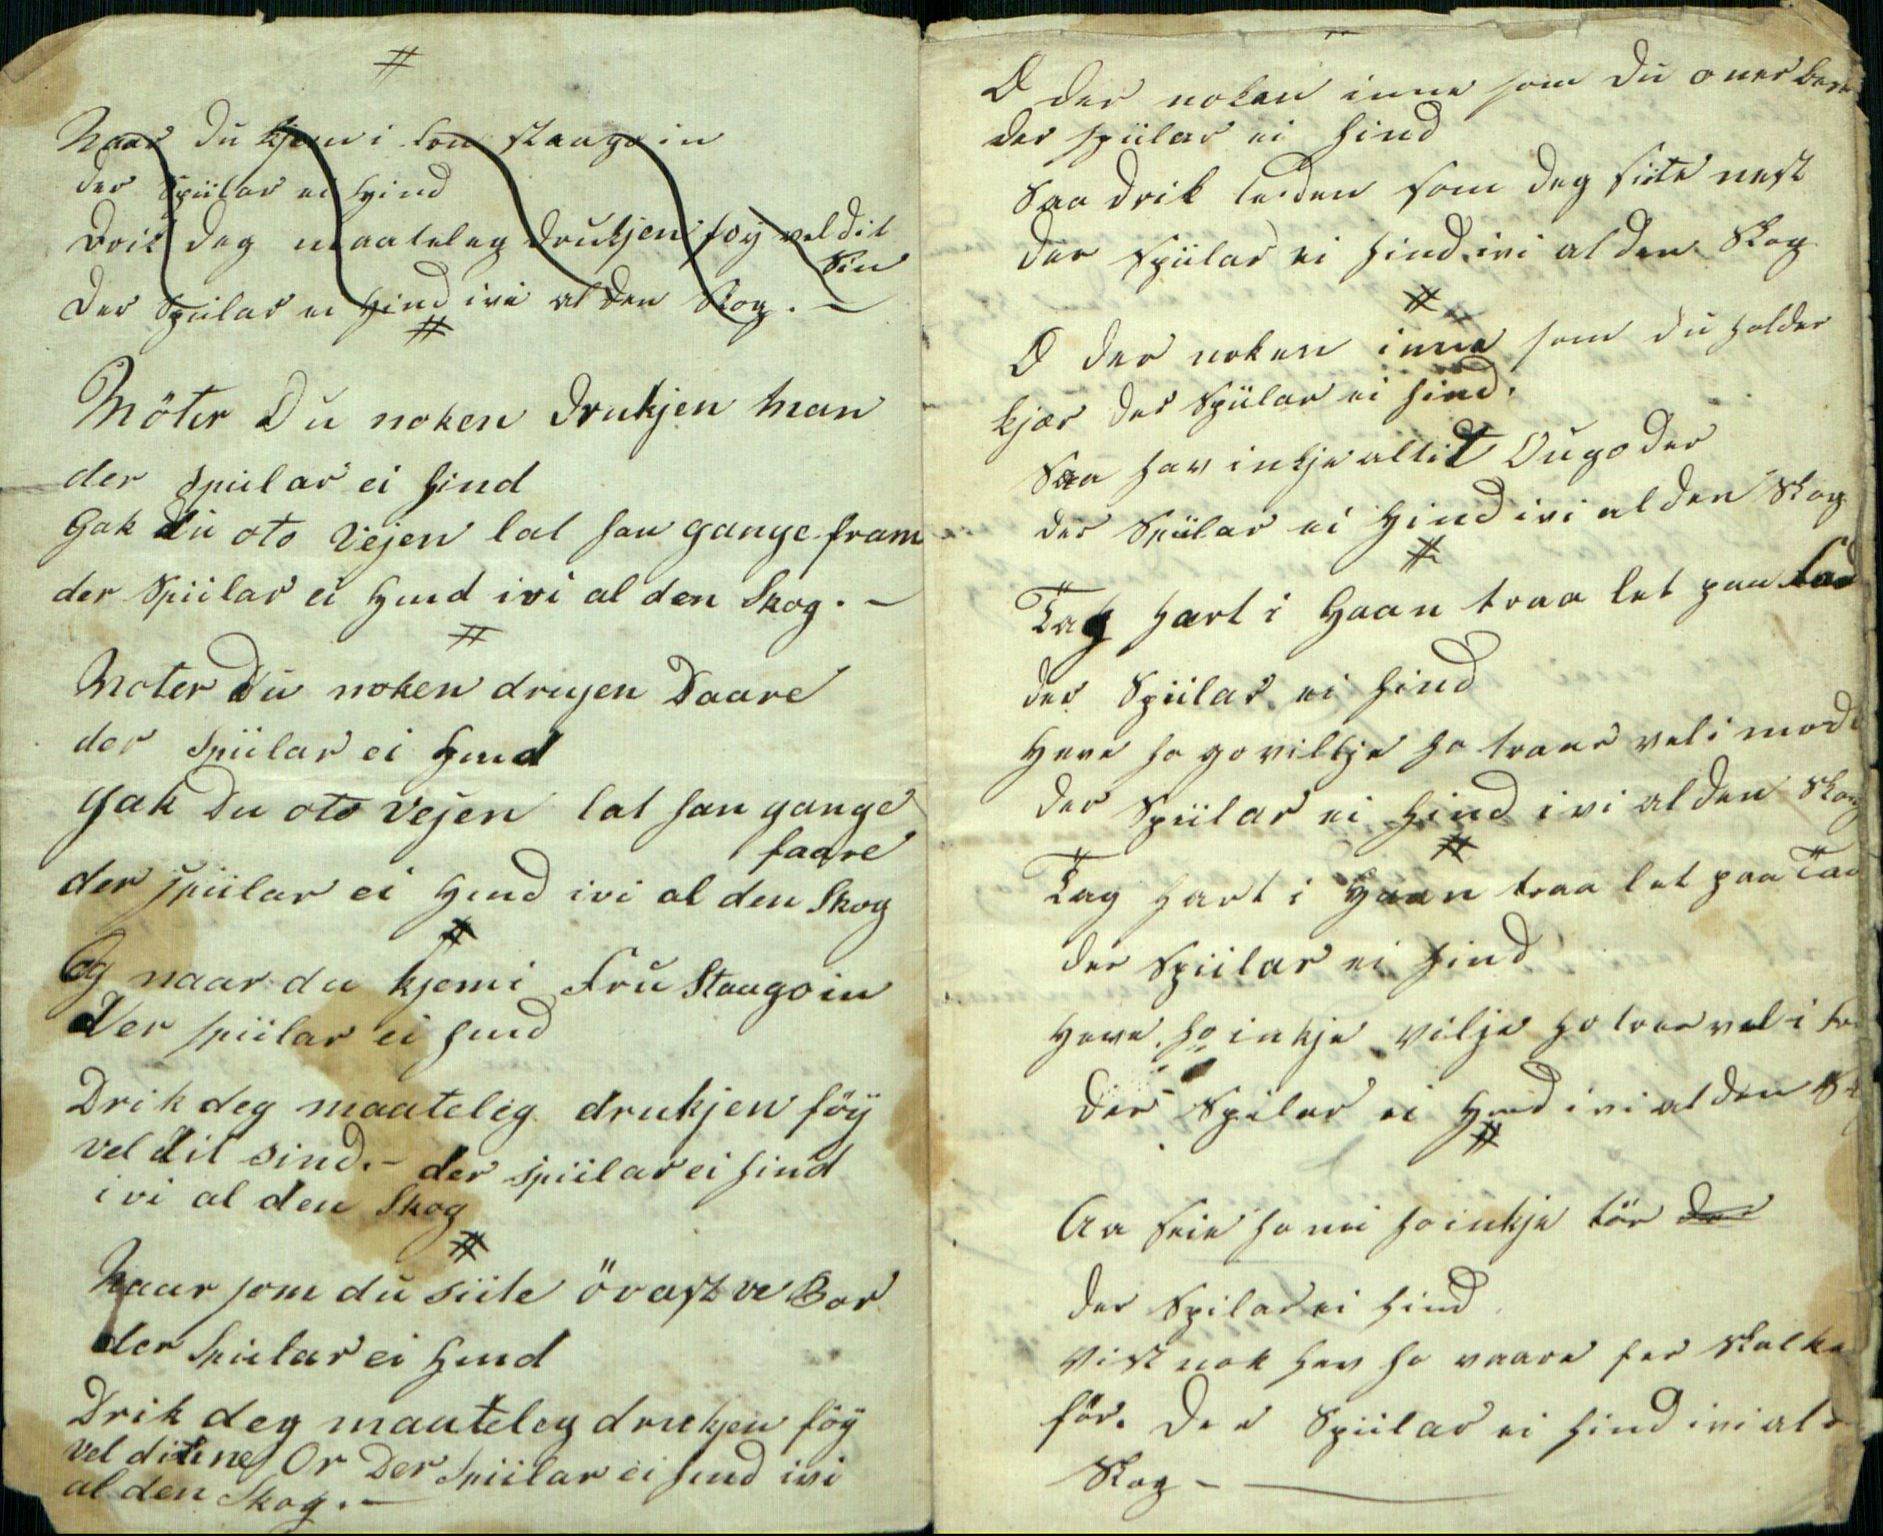 #
Naar du kjem i Fru staago in
der Spiilar ei Hind
Drik deg maateleg drukjen föy vel dit
Sin
der Spiilar ei Hind ivi al den Skog. –
#
Möter Du noken Drukjen Man
der Spiilar ei Hind
Gak du oto Vejen lat han gange fram
der Spiilar ei Hind ivi al den Skog. –
#
Moter Du noken drujen Daare
der Spiilar ei Hind
Gak Du oto Vejen lat han gange
faare
der Spiilar ei Hind ivi al den Skog
#
Og naar du kjem i Fru Staago in
Der Spiilar ei Hind
Drik deg maateleg drukjen föy
vel dit sind. – der Spiilar ei Hind
ivi al den Skog
#
Naar som du siite övast ve Bor
der Spiilar ei Hind
Drik deg maateleg drukjen föy
vel ditene Or Der Spiilar ei Hind ivi
al den Skog. –
O der noken inne som du
der Spiilar ei Hind
Saa drik leiden som deg siite nest
der Spiilar ei Hind ivi al den Skog
#
O der noken inne som du holder
kjær der Spiilar ei Hind.
Saa hav inkje altit Ougo der
der Spiilar ei Hind ivi al den Skog
#
Tag hart i Haan traa let paa
der Spiilar ei Hind
Heve ho go viltje ho traar vel i mod
der Spiilar ei Hind ivi al den Skog
#
Tag hart i Haan traa let paa
der Spiilar ei Hind
Heve ho inkje vilje ho traar vel i
der Spilar ei Hind ivi al den
#
Aa seie ho nei ho inkje tör der
der Spilar ei Hind
Vist nok hev ho vaare for
för. Der Spiilar ei Hind ivi al
Skog –